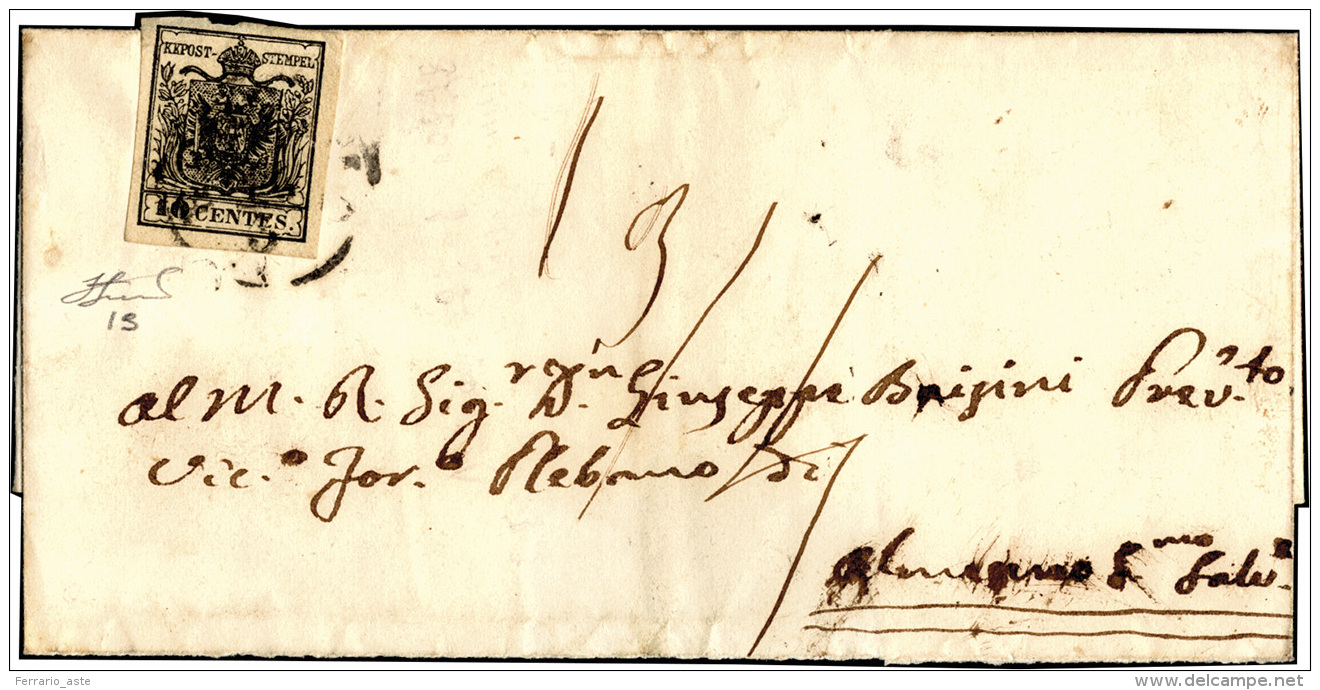 KKPOST-STEMPEL
10 CENTES.
13
al M. R. Sig. D. Giuseppe Brizini Prev.to
Vic.o For.o Plebano di
Almenno S. Salv.e
Ferrario_aste
www.delcampe.net